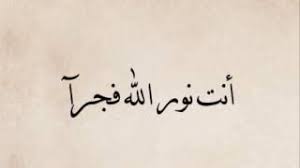 أنت نور الله فجرآ